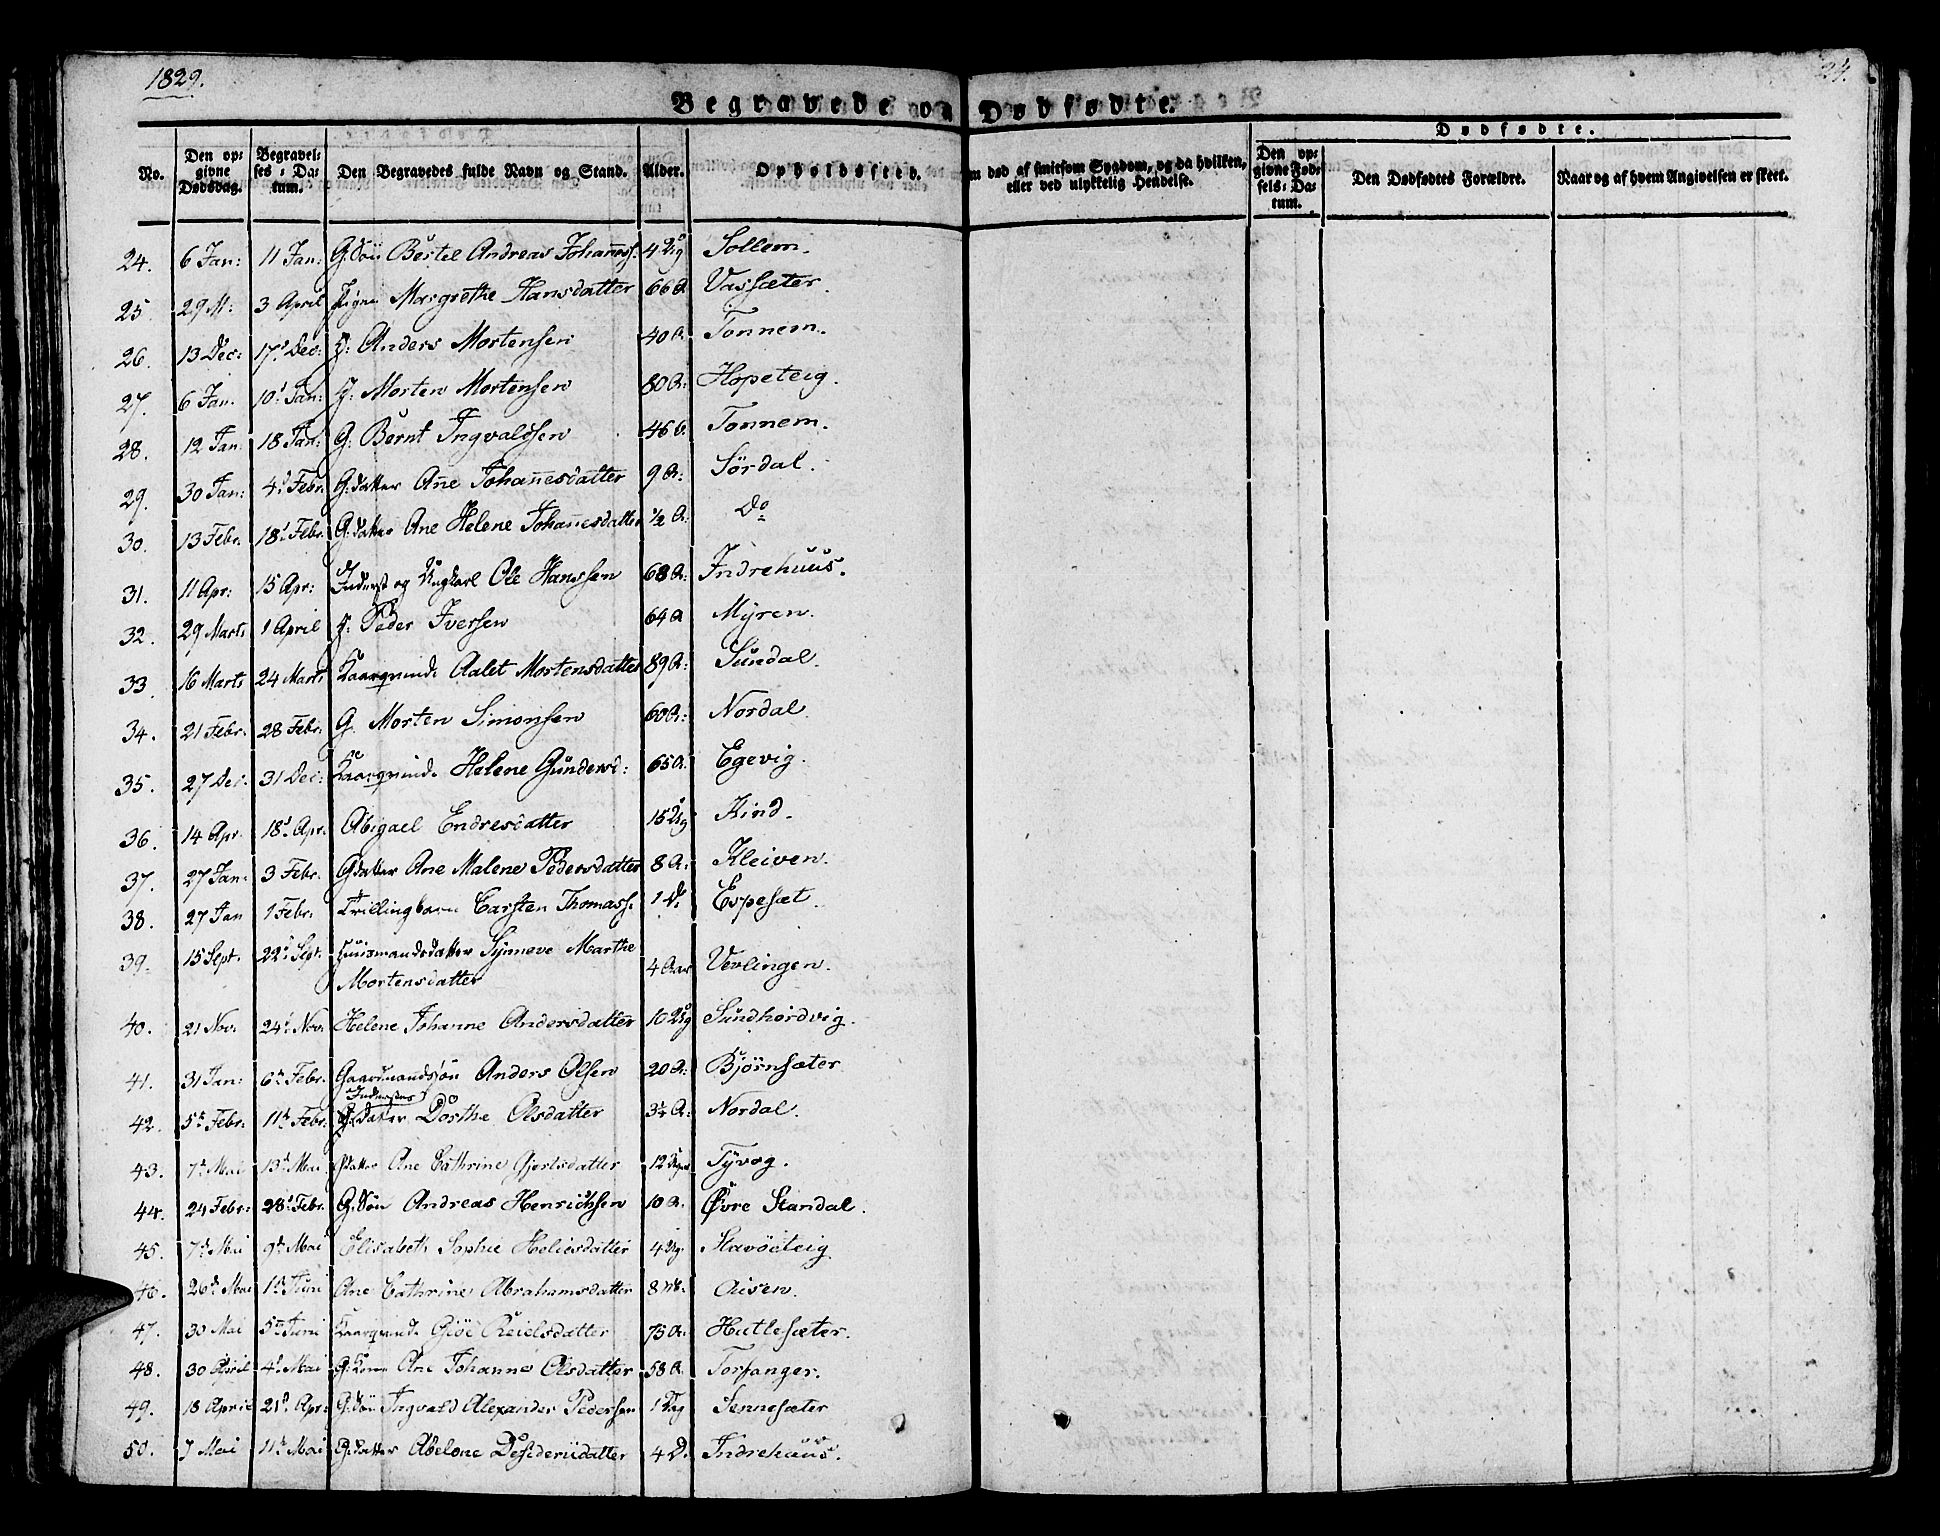 1829.
24.
Begravede og Dødfødte.
Dødfødte.
No.
Den opgivne Dødsdag.
Begravelses-Datum.
Den Begravedes fulde Navn og Stand.
Alder.
Opholdssted.
Om død af smitsom Sygdom, og da hvilken, eller ved ulykkelig Hendelse.
Den opgivne Fødsels-Datum.
Den Dødfødtes Forældre.
Naar og af hvem Angivelsen er skeet.
24. 6 Jan: 11 Jan: G: Søn Bertel Andreas Johanness: 4 Ug Sollem.
25. 29 M: 3 April Pige Margrethe Hansdatter 66 A Vassæter.
26. 13 Dec: 17d Dec: Anders Mortensen 40 A. Tonnem.
27. 6 Jan. 10d Jan: Morten Mortensen 80 A: Hopeteig.
28. 12 Jan. 18 Jan: G: Bernt Ingvaldsen 46 Tonnem.
29. 30 Jan: 4d Febr. G: datter Ane Johannesdatter 9 A: Sørdal.
30. 13 Febr. 18d Febr. G: datter Ane Helene Johannesdatter 1/2 A: Do
31. 11 Apr: 15 Apr: Inderst og Ungkarl Ole Hanssen 68 A: Indrehuus.
32. 29 Marts 1 April Peder Iversen 64 A Myren.
33. 16 Marts 24 Marts Kaarqvinde Aalet Mortensdatter 89 A: Sundal.
34. 21 Febr. 28 Febr: G. Morten Simonsen 60 A: Nordal.
35. 27 Dec. 31 Dec: Kaarqvinde Helene Gundersd: 65 A. Egevig.
36. 14 Apr 18d Apr. Abigael Endresdatter 15 Ug Rind.
37. 27 Jan. 3 Febr. G datter Ane Malene Pedersdatter 8 A: Kleiven.
38. 27 Jan 1 Febr. Trillingbarn Carsten Thomass. 1 D. Espesæt.
39. 15 Sept. 22d Sept. Huusmandsdatter Synneve Marthe
Mortensdatter 4 Aar Vevlingen.
40. 21 Nov. 24d Nov. Helene Johanne Andersdatter 10 Ug Sundhordvig.
41. 31 Jan: 6te Febr. Gaardmandssøn Anders Olsen 20 A: Bjørnsæter
Inderstes
42. 5te Febr. 11te Febr. G: datter Dorthe Olsdatter 3 1/2 A: Nordal.
43. 7de Mai 13de Mai G datter Ane Cathrine Gjertsdatter 12 Uger Tyvog.
44. 24 Febr: 28d Febr. G: Søn Andreas Henrichsen 10 A. Øvre Standal.
45. 7de Mai 9de Mai Elisabeth Sophie Heliesdatter 4 Ug. Stavøeteig
46. 26de Mai 1ste Juni Ane Cathrine Abrahamsdatter 8 M. Risen.
47. 30 Mai 5te Juni Kaarqvinde Giøe Reielsdatter 75 A: Hatlesæter.
48. 30 April 4d Mai G: Kone Ane Johanne Olsdatter 58 A Torfanger.
49. 18 April 21d Apr: G: Søn Ingvald Alexander Pedersen 1 Dag Sennesæter
50. 7 Mai 11te Mai G: datter Abelone Desideriidatter 4 D. Indrehuus.